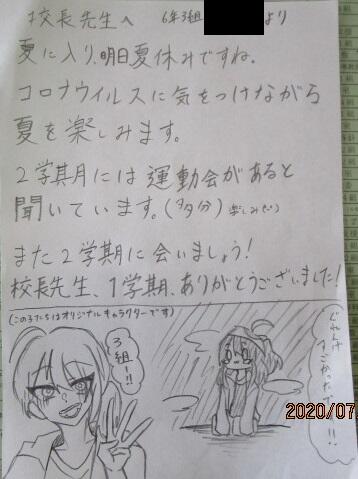 校長先生へ 6年3組 より
夏に入り、明日夏休みですね。
コロナウイルスに気をつけながら
夏を楽しみます。
2学期には運動会があると
聞いています。(多分) 楽しみだ)
また2学期に会いましょう!
校長先生、1学期、ありがとうございました!
(この子たちはオリジナルキャラクターです)
3組ー!!
すごかったで
2020/07